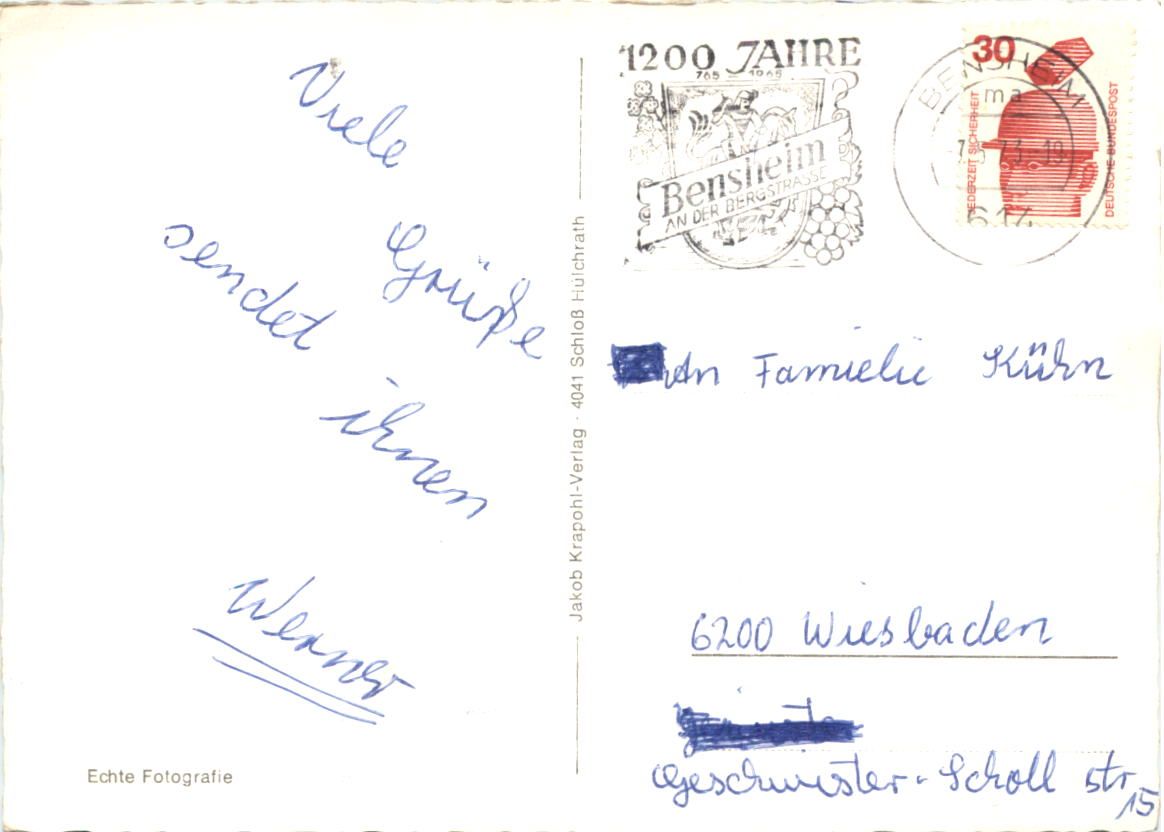 Viele
Grüße
sendet
ihnen
Werner
Echte Fotografie
Jakob Krapohl-Verlag · 4041 Schloß Hülchrath
1200 JAHRE
765 – 1965
Bensheim
AN DER BERGSTRASSE
BENSHEIM
ma
73-19
614
30
JEDERZEIT SICHERHEIT
DEUTSCHE BUNDESPOST
An Famielie Kühn
6200 Wiesbaden
Geschwister-Scholl str
15